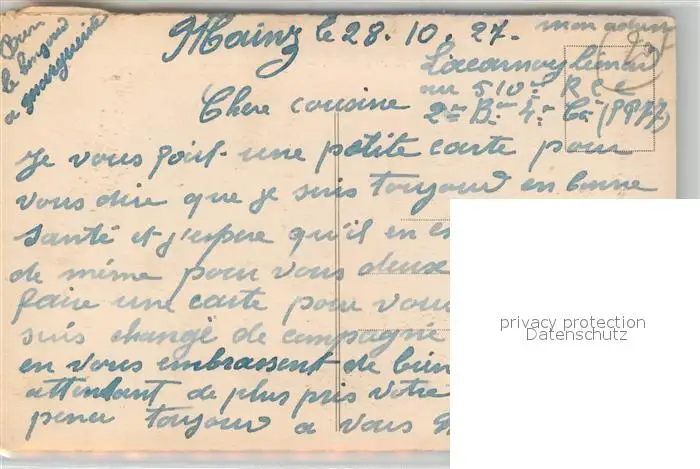 Mainz le 28. 10. 27.
mon
au 510e R C C
Chere cousine
2me B.on 4.e Cie (SP77)
a marguerite
Je vous fait une petite carte pour
vous dire que je suis toujour en bonne
santé et j'espere qu'il en es
de même pour vous deux
faire une carte pour vous
suis changé de compagnie
en vous embrassent de bien
attendant de plus pris votre
penser toujour a vous
privacy protection
Datenschutz